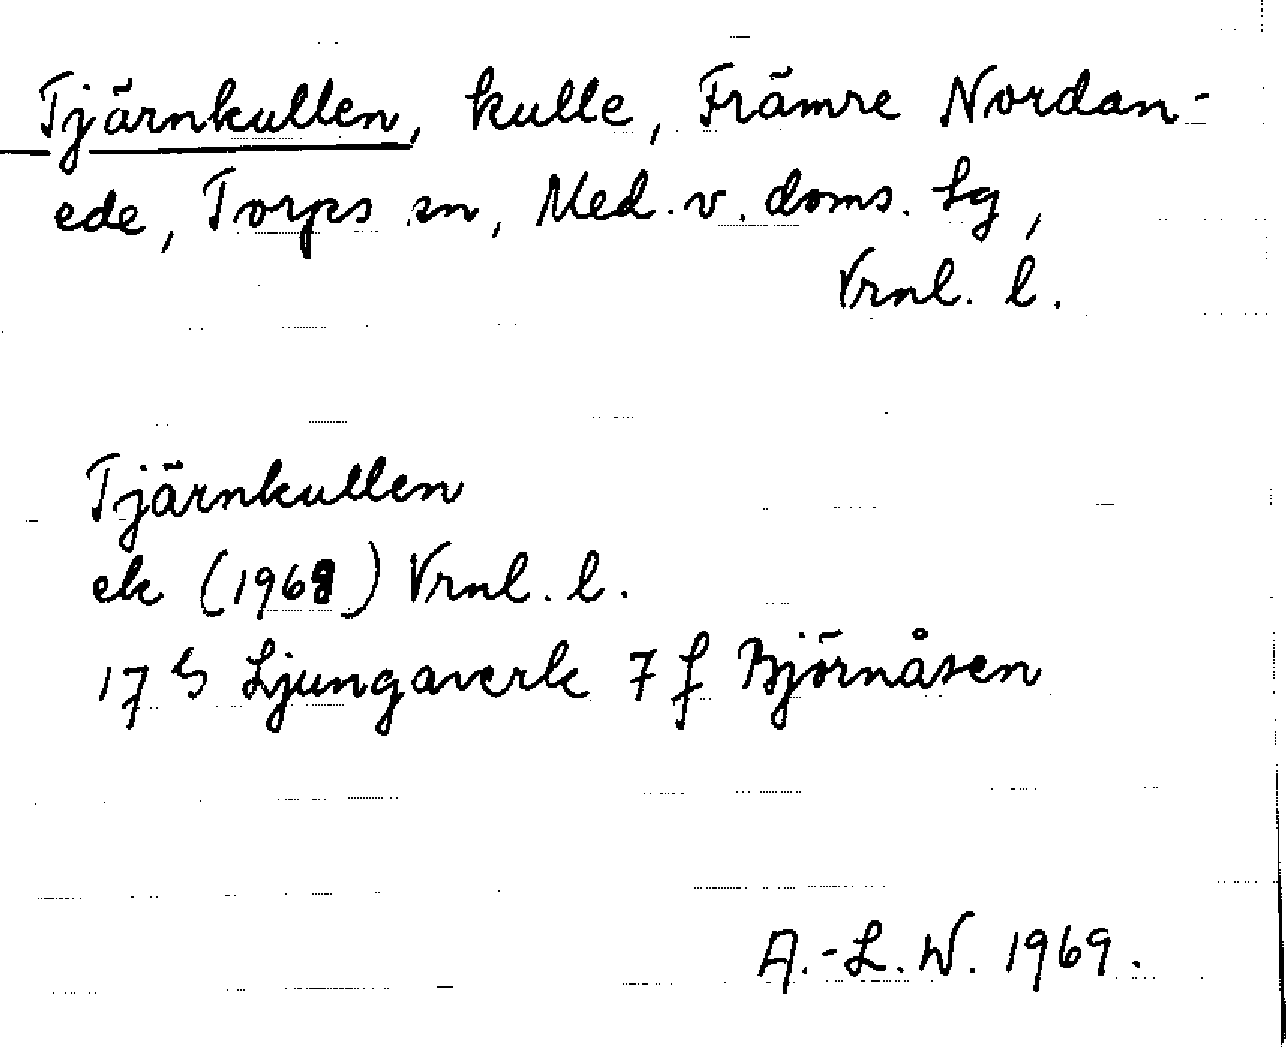 Tjärnkullen, kulle, Främre Nordan-
ede, Torps sn, Med. v. doms. lg,
Vrnl. l.
Tjärnkullen
ek (1968) Vrnl. l.
17 G Ljungaverk 7 f Björnåsen
A.-L. W. 1969.